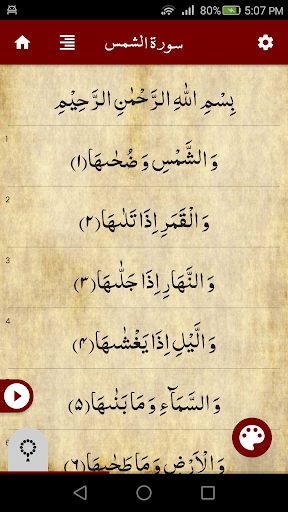 80% 5:07 PM
سورة الشمس
بِسْمِ اللّٰهِ الرَّحْمٰنِ الرَّحِيْمِ
1
وَالشَّمْسِ وَضُحٰىهَا ﴿۱﴾
2
وَالْقَمَرِ اِذَا تَلٰىهَا ﴿۲﴾
3
وَالنَّهَارِ اِذَا جَلّٰىهَا ﴿۳﴾
4
وَالَّيْلِ اِذَا يَغْشٰىهَا ﴿۴﴾
وَالسَّمَآءِ وَمَا بَنٰىهَا ﴿۵﴾
6
وَالْاَرْضِ وَمَا طَحٰىهَا ﴿۶﴾